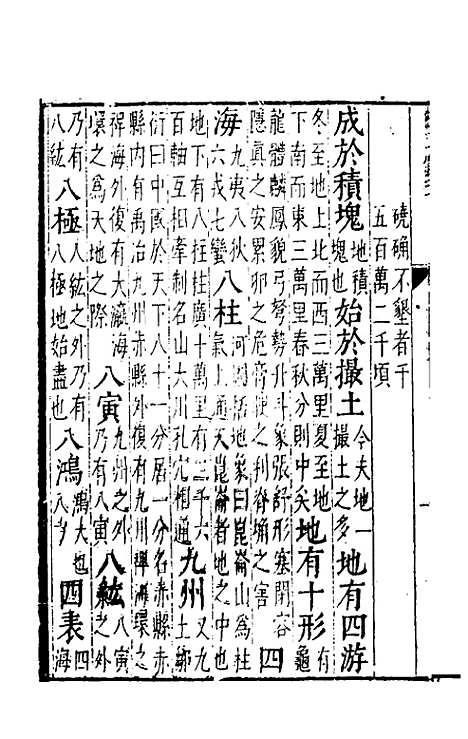 磽确不墾者千
五百萬二千頃
成於積塊地積塊也始於撮土今夫地一撮土之多地有四游
冬至地上北而西三萬里夏至地下南而東三萬里春秋分則中矣地有十形有龜
龍體麟鳳貌弓弩勢升斗象張舒形塞閉容隱真之安累卵之危膏腴之利脊埆之害四
海九夷八狄六戎七蠻八柱河圖括地象曰崑崙山為柱氣上通天崑崙者地之中也
地下有八柱柱廣十萬里有三千六百軸互相牽制名山大川孔穴相通九州又九土鄒
衍曰中國於天下八十一分居一分名赤縣赤縣內有禹治九州赤縣外復有九州裨海環之
裨海外復有大瀛海壖之為天地之際八寅九州之外乃有八寅八紘八寅之外
乃有八紘八極八紘之外乃有八極地始盡也八鴻鴻大也八方四表四海